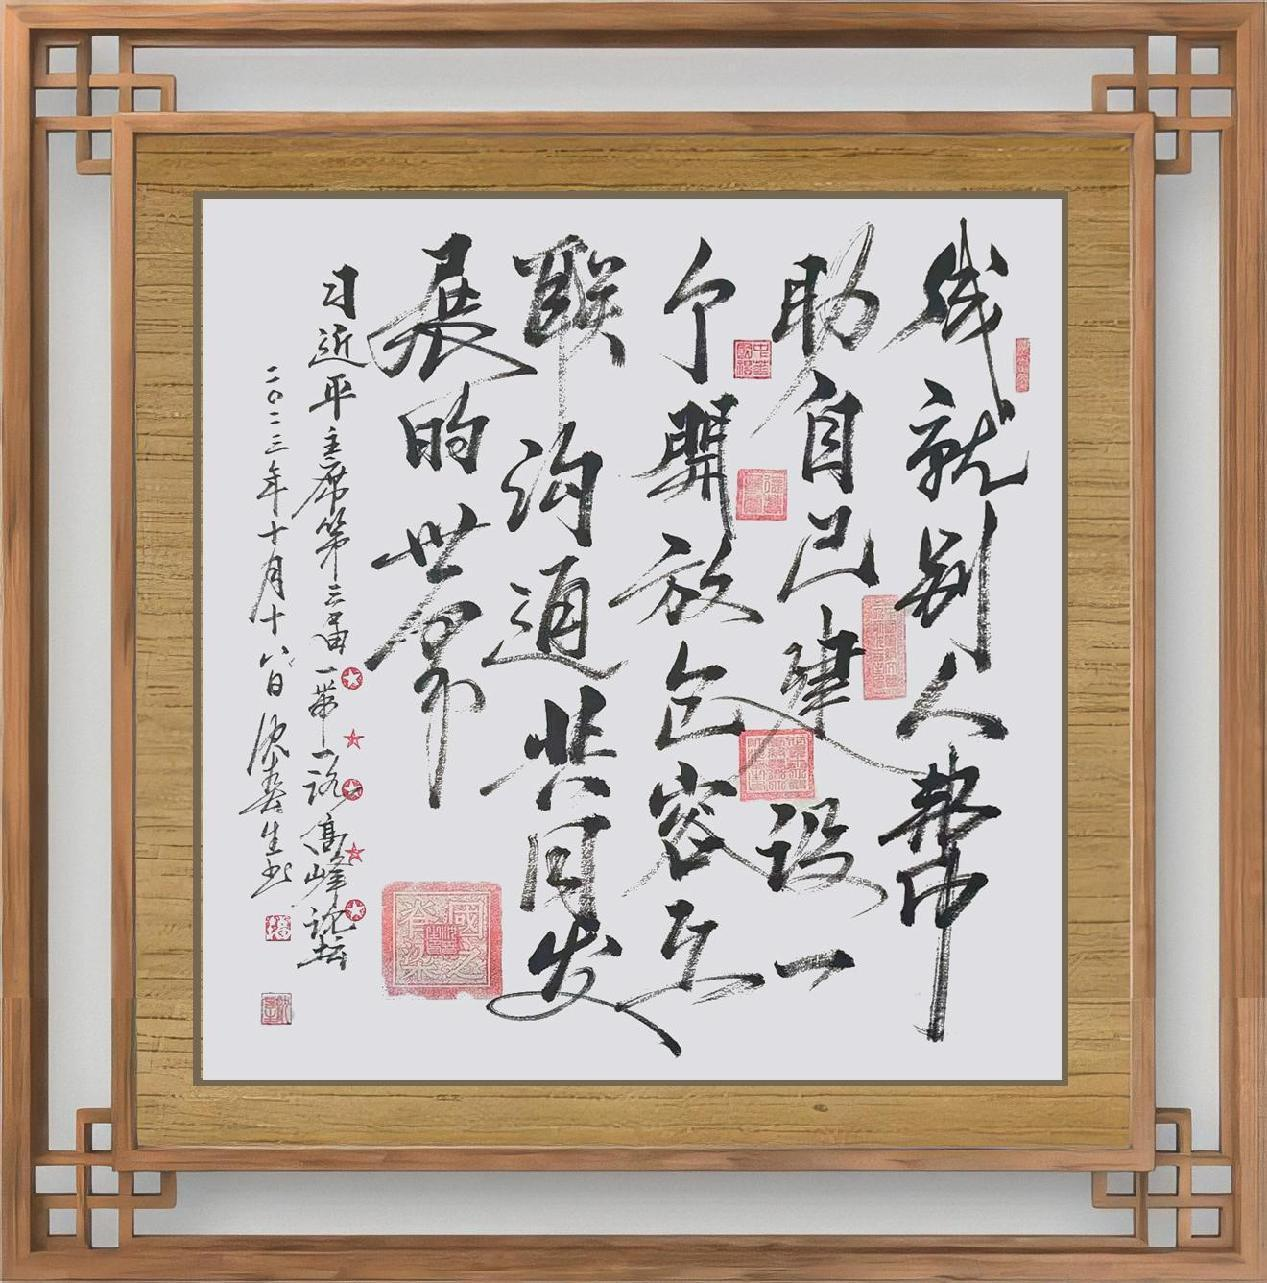 成就别人帮
助自己建设一
个開放包容互
联沟通共同发
展的世界
习近平主席第三届一带一路高峰论坛
二〇二三年十月十八日沈春生书
國之脊梁